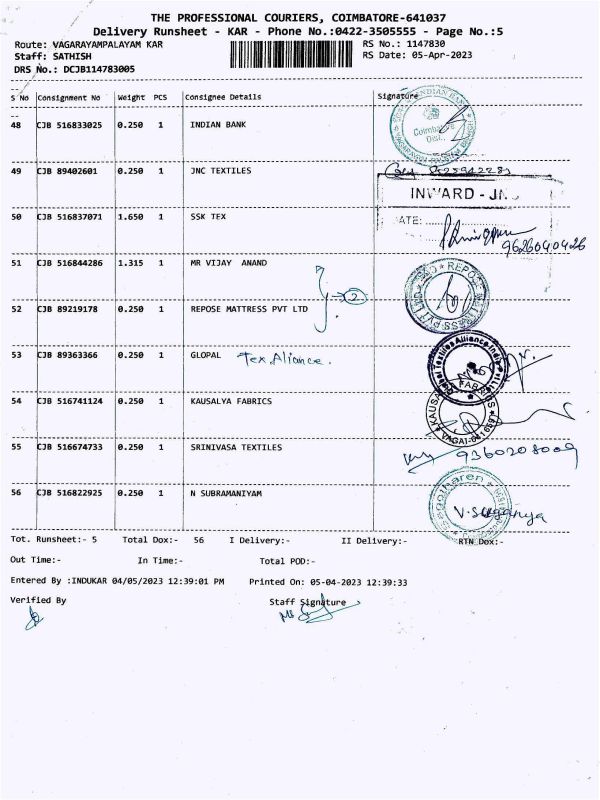 THE PROFESSIONAL COURIERS, COIMBATORE-641037
Delivery Runsheet - KAR - Phone No.:0422-3505555 - Page No.:5
Route: VAGARAYAMPALAYAM KAR RS No.: 1147830
Staff: SATHISH RS Date: 05-Apr-2023
DRS No.: DCJB114783005
S No Consignment No Weight PCS Consignee Details Signature
48 CJB 516833025 0.250 1 INDIAN BANK
Coimbatore
Dist.
49 CJB 89402601 0.250 1 JNC TEXTILES
INWARD - JN
50 CJB 516837071 1.650 1 SSK TEX
DATE:
9626040426
51 CJB 516844286 1.315 1 MR VIJAY ANAND
2
52 CJB 89219178 0.250 1 REPOSE MATTRESS PVT LTD
REPOSE MATTRESS PVT LTD
53 CJB 89363366 0.250 1 GLOPAL Tex Aliance.
Global Textiles Alliance India Pvt Ltd
54 CJB 516741124 0.250 1 KAUSALYA FABRICS
KAUSALYA FABRICS
55 CJB 516674733 0.250 1 SRINIVASA TEXTILES
9360208009
56 CJB 516822925 0.250 1 N SUBRAMANIYAM
V. Suganya
Tot. Runsheet:- 5 Total Dox:- 56 I Delivery:- II Delivery:- RTN Dox:-
Out Time:- In Time:- Total POD:-
Entered By :INDUKAR 04/05/2023 12:39:01 PM Printed On: 05-04-2023 12:39:33
Verified By Staff Signature